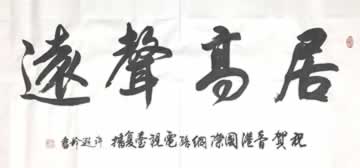 居高聲遠
祝賀香港國際網路電視臺復播